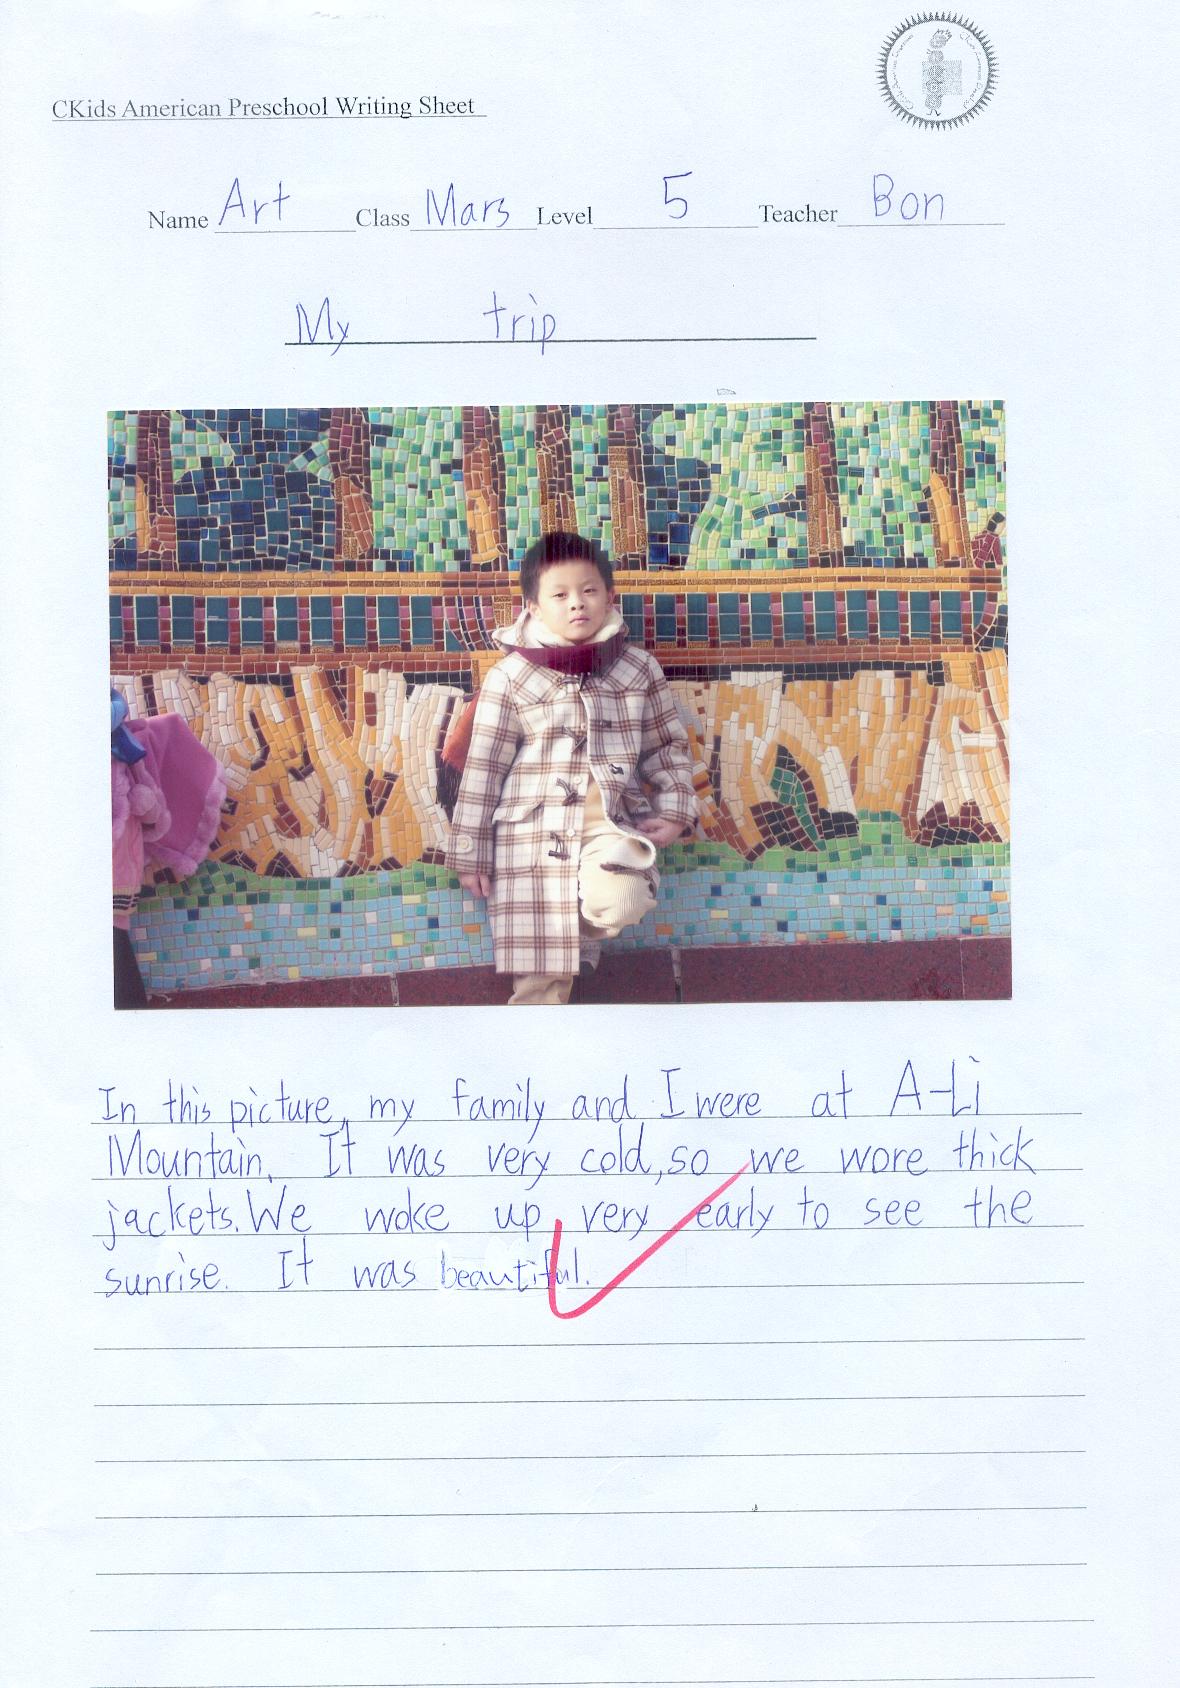 CKids American Preschool Writing Sheet
Name Art Class Mars Level 5 Teacher Bon
My trip
In this picture, my family and I were at A-Li
Mountain. It was very cold, so we wore thick
jackets. We woke up very early to see the
sunrise. It was beautiful.